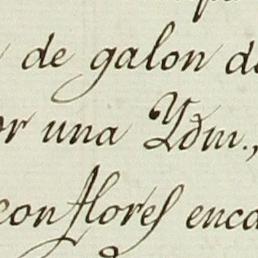 de galon de
or una Ydm.,
con flores enca